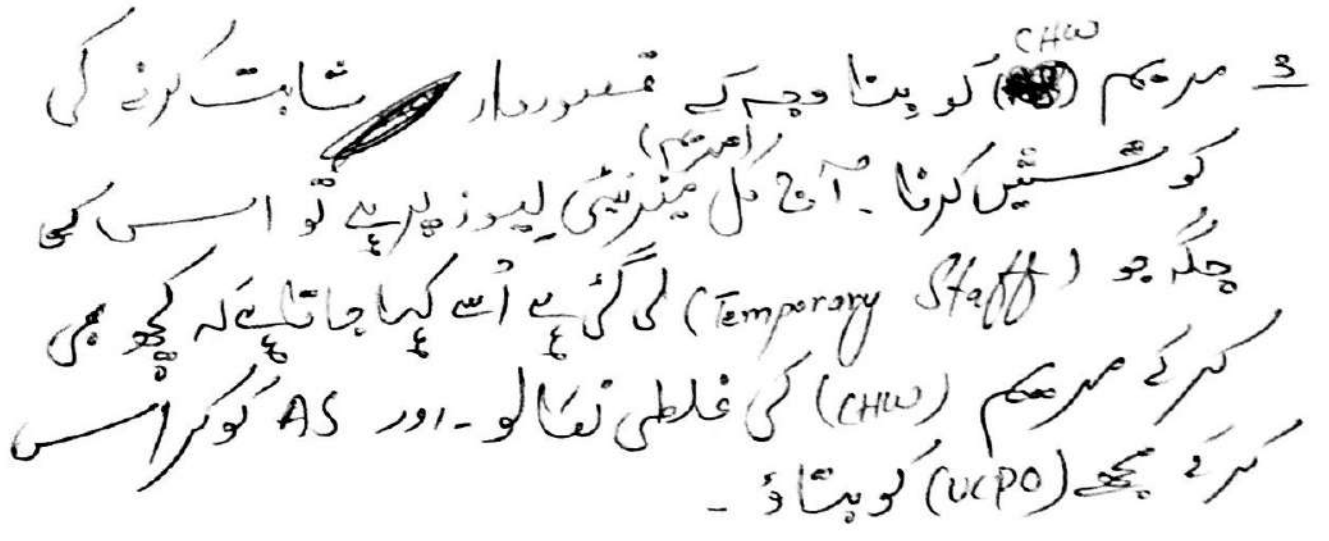 3 مریم (CHW) کو بنا وجہ کے قصوروار ثابت کرنے کی
کوششیں کرنا ۔ آج کل (مریم) میٹرنیٹی لیوز پر ہے تو اس کی
جگہ جو (Temporary Staff) لی گئی ہے اُسے کہا جاتا ہے کہ کچھ بھی
کر کے مریم (CHW) کی غلطی نکالو ۔ اور AS کو کراس
کر کے مجھے (UCPO) کو بتاؤ ۔